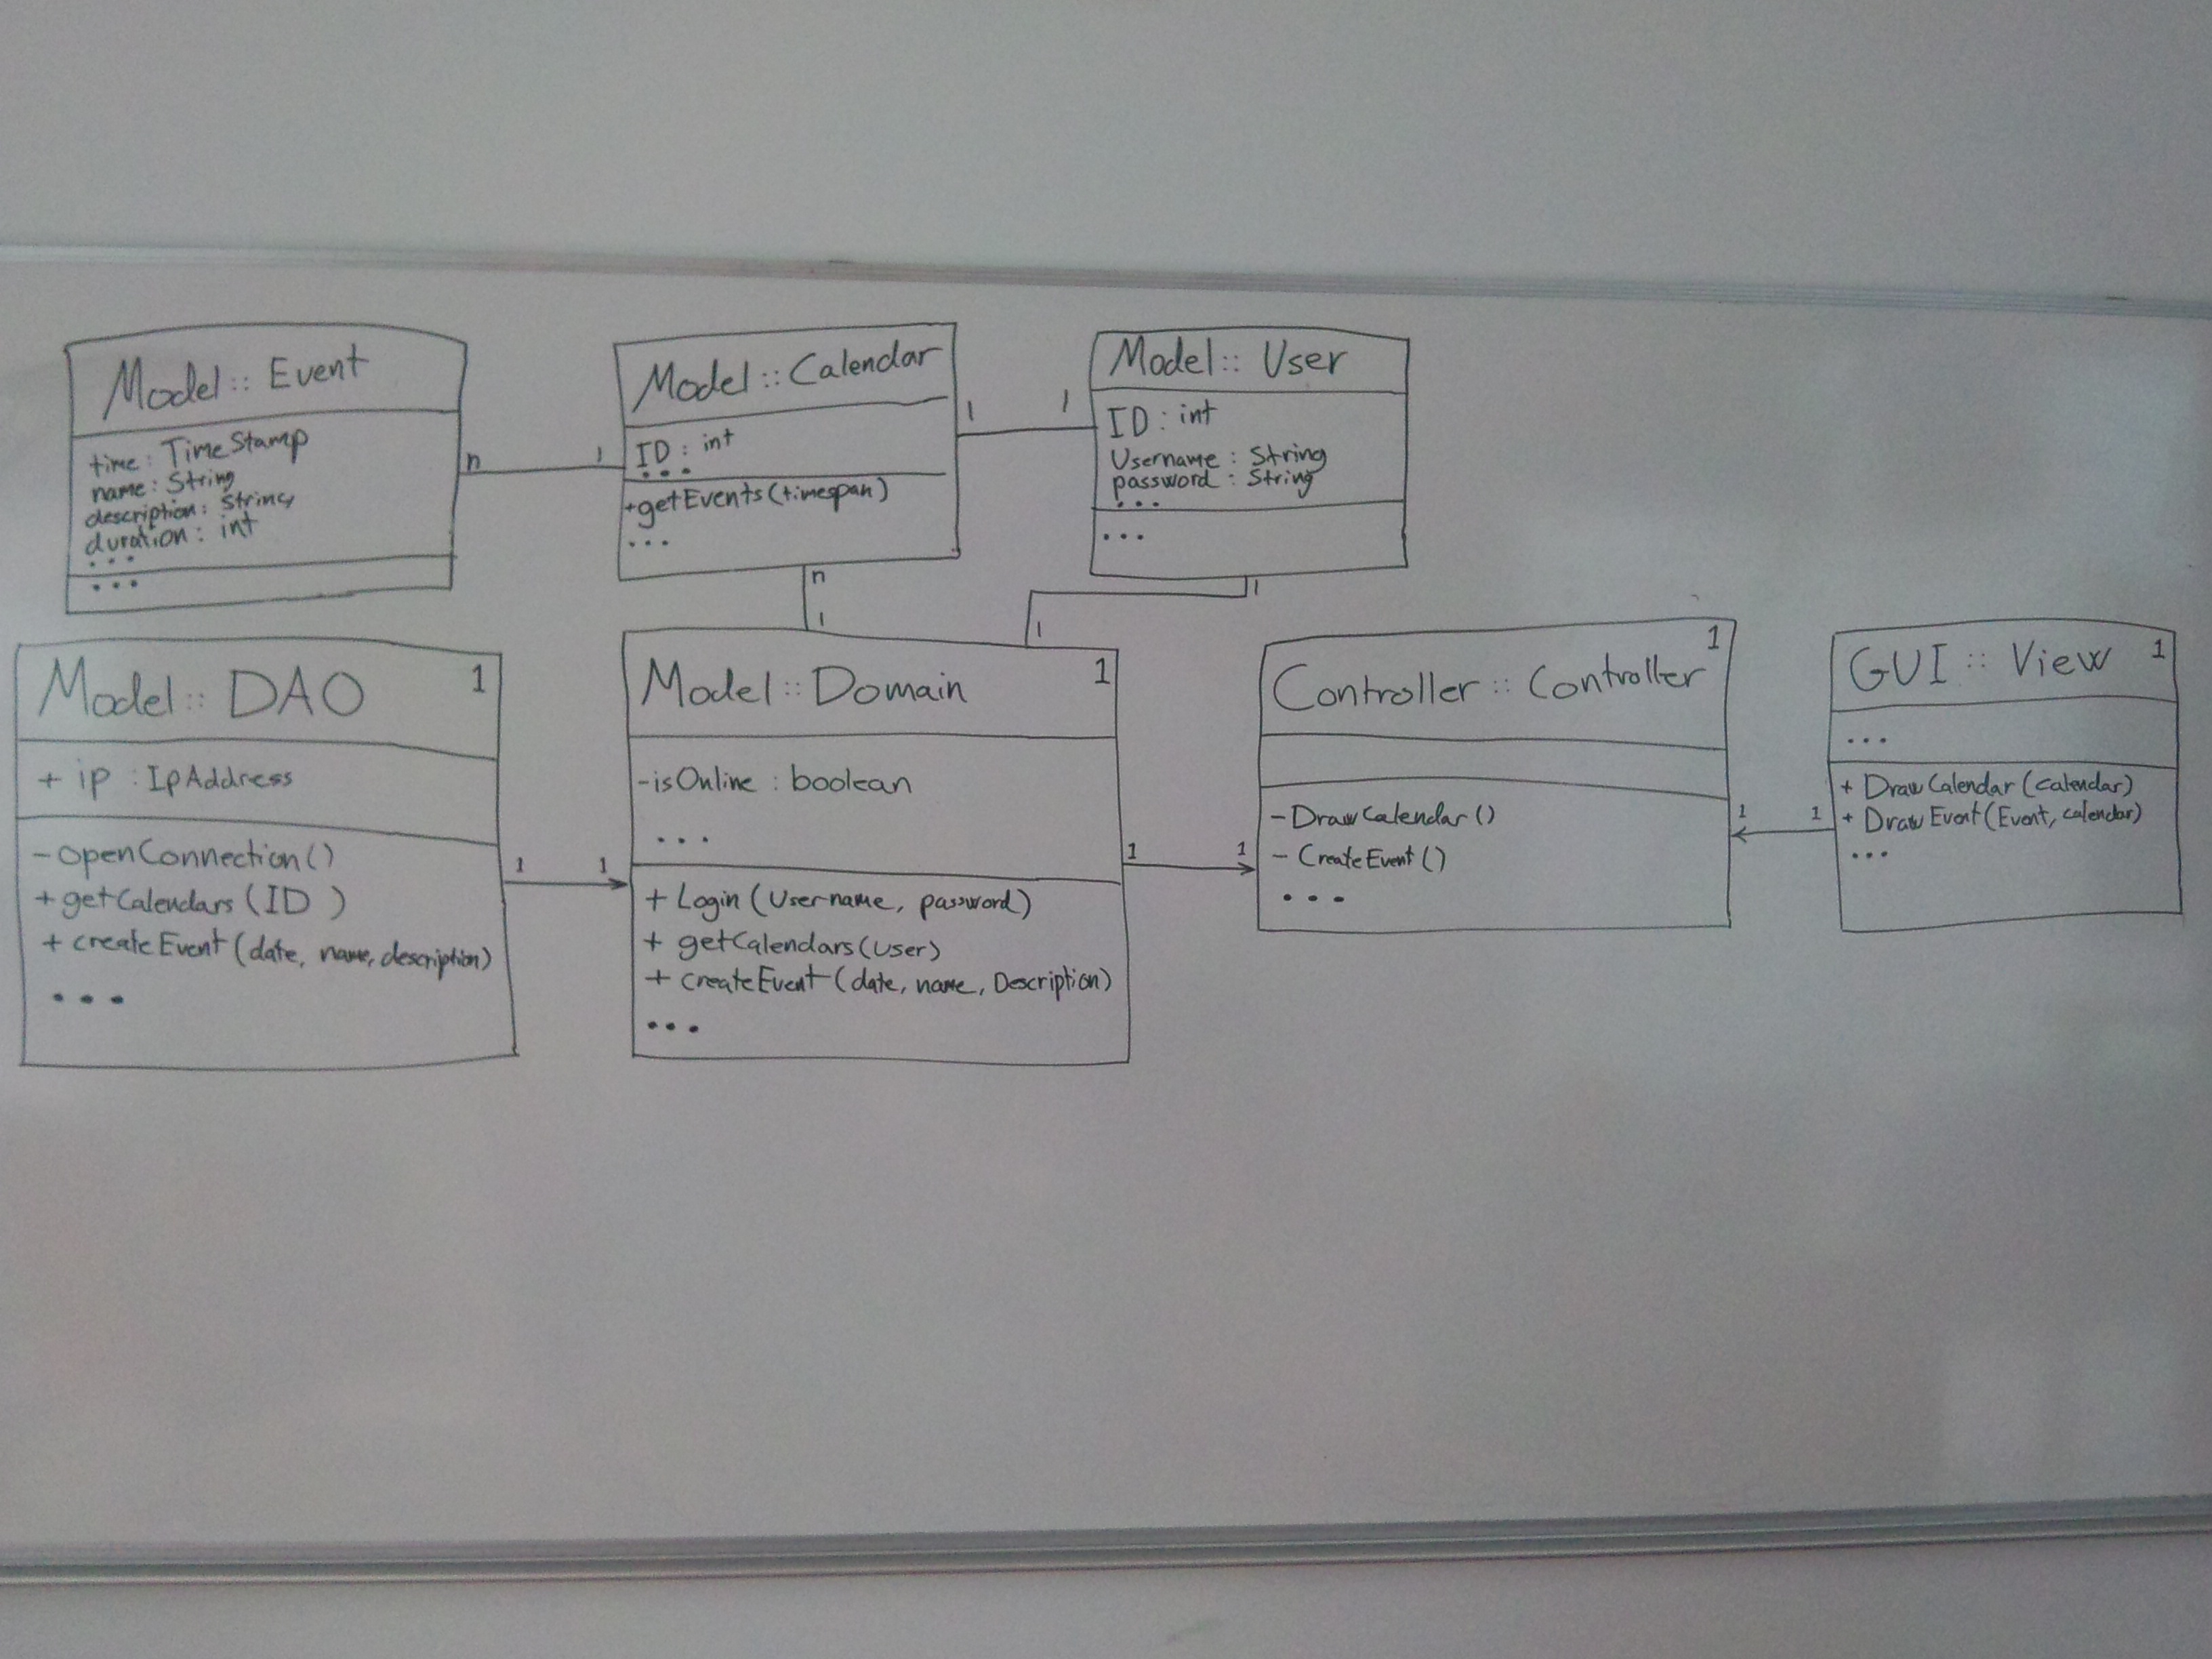 Model :: Event
time : TimeStamp
name : String
description : String
duration : int
...
...
n
1
Model :: Calendar
ID : int
...
+getEvents(timespan)
...
1
1
n
1
Model :: User
ID : int
Username : String
password : String
...
...
1
1
Model :: DAO
1
+ ip : IpAddress
- openConnection()
+ getCalendars (ID )
+ createEvent (date, name, description)
...
1
1
Model :: Domain
1
- isOnline : boolean
...
+ Login (Username, password)
+ getCalendars (User)
+ createEvent (date, name, Description)
...
1
1
Controller :: Controller
1
- DrawCalendar ()
- CreateEvent ()
...
1
1
GUI :: View
1
...
+ DrawCalendar (calendar)
+ DrawEvent (Event, calendar)
...